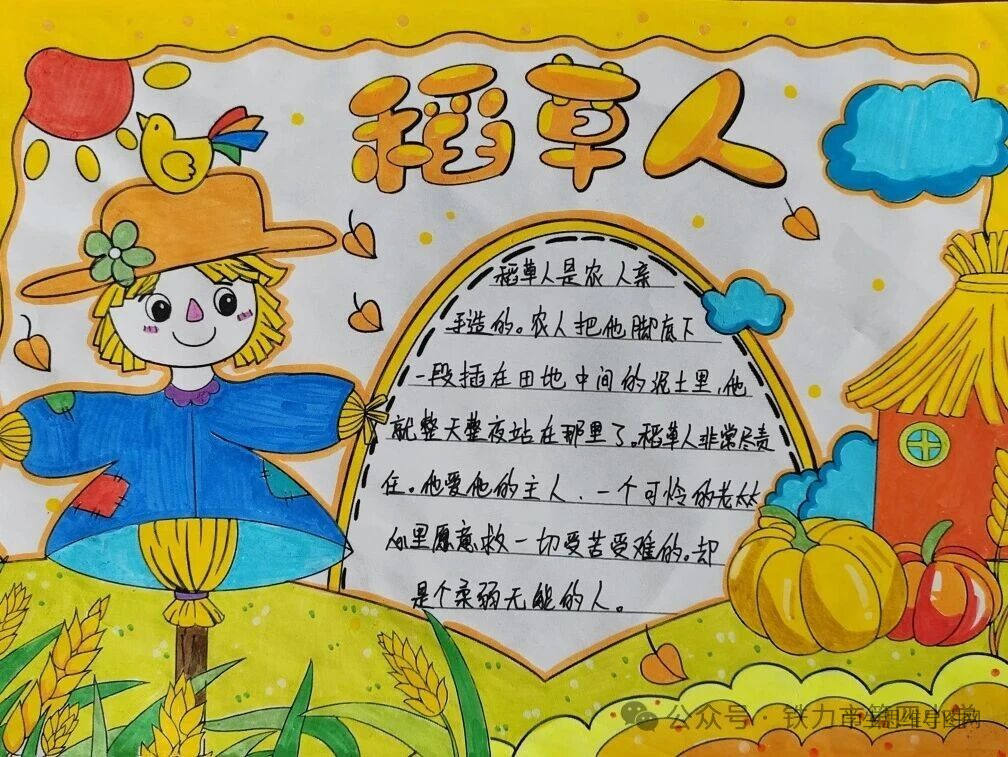 稻草人
稻草人是农人亲
手造的。农人把他脚底下
一段插在田地中间的泥土里,他
就整天整夜站在那里了。稻草人非常尽责
任。他爱他的主人,一个可怜的老太太
心里愿意救一切受苦受难的。却
是个柔弱无能的人。
公众号 · 铁力市第四中学